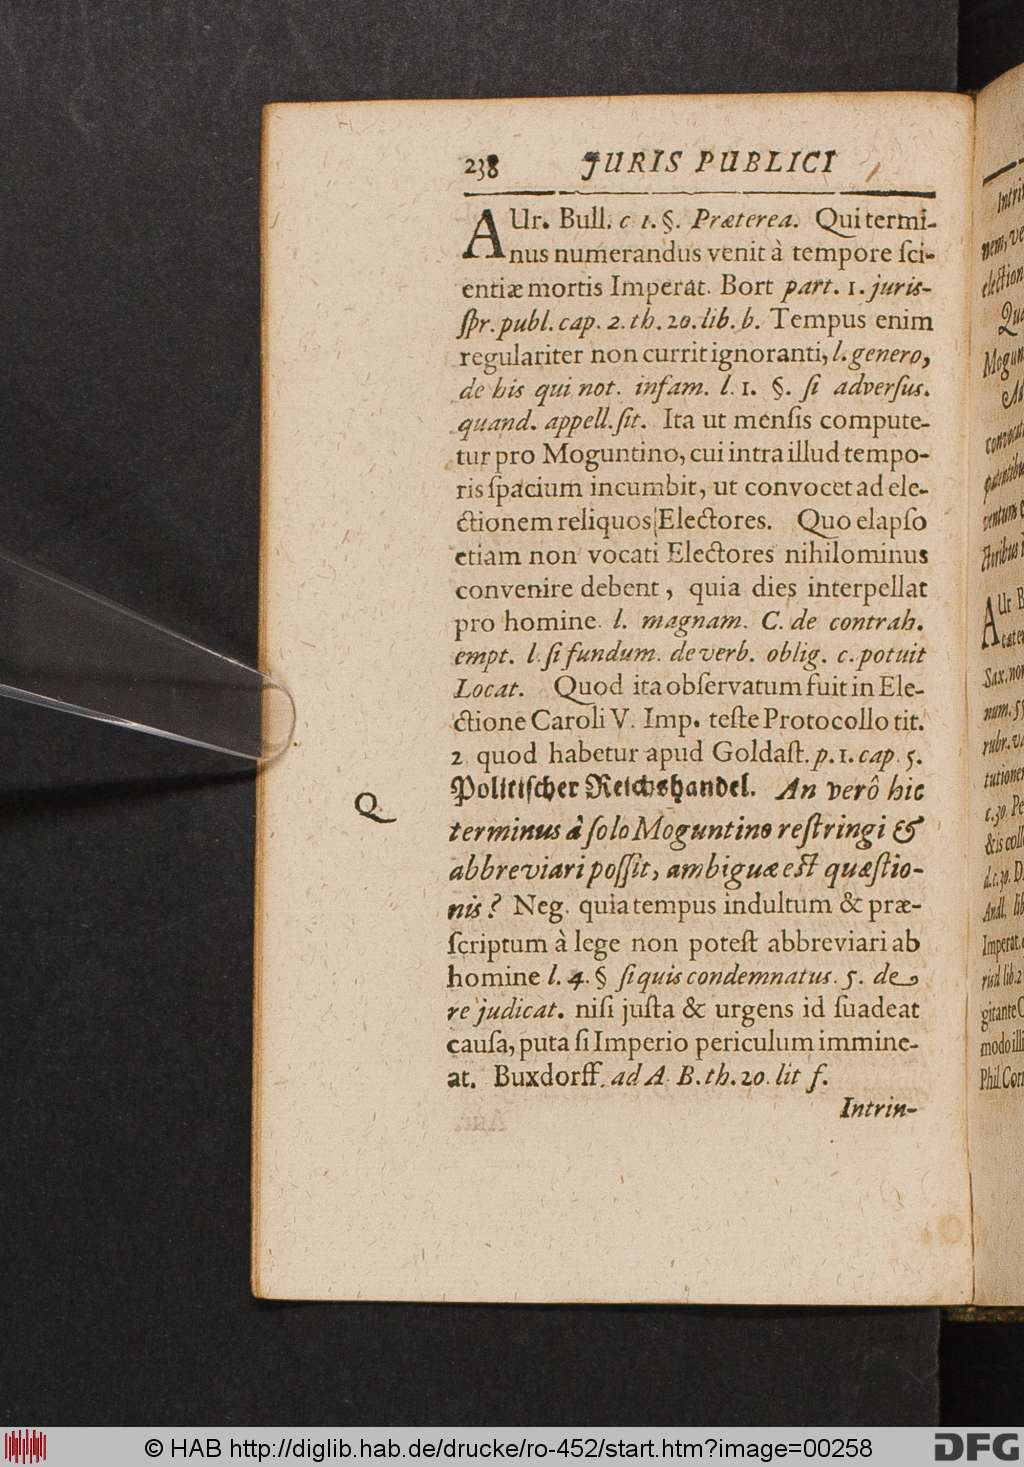 238 JURIS PUBLICI
AUr. Bull. c 1. §. Præterea. Qui termi-
nus numerandus venit à tempore ſci-
entiæ mortis Imperat. Bort part. 1. juris-
ſpr. publ. cap. 2. th. 20. lib. b. Tempus enim
regulariter non currit ignoranti, l. genero,
de his qui not. infam. l. 1. §. ſi adverſus.
quand. appell. ſit. Ita ut menſis compute-
tur pro Moguntino, cui intra illud tempo-
ris ſpacium incumbit, ut convocet ad ele-
ctionem reliquos Electores. Quo elapſo
etiam non vocati Electores nihilominus
convenire debent, quia dies interpellat
pro homine. l. magnam. C. de contrah.
empt. l. ſi fundum. de verb. oblig. c. potuit
Locat. Quod ita obſervatum fuit in Ele-
ctione Caroli V. Imp. teſte Protocollo tit.
2 quod habetur apud Goldaſt. p. 1. cap. 5.
Politiſcher Reichshandel. An verô hic
Q.
terminus à ſolo Moguntino reſtringi &
abbreviari poſſit, ambiguæ eſt quæſtio-
nis? Neg. quia tempus indultum & præ-
ſcriptum à lege non poteſt abbreviari ab
homine l. 4. § ſi quis condemnatus. 5. de
re judicat. niſi juſta & urgens id ſuadeat
cauſa, puta ſi Imperio periculum immine-
at. Buxdorff. ad A. B. th. 20. lit f.
Intrin-
Intri
nem, ve
election
Qua
Mogun
convocat
ventum
AUr B
Sax. non
num. 55
rubr. va
tutionem
c. 30. Pe
& is coll
d. c. 30. D.
Andl. lib
Imperat.
riſd lib. 2
gitante C
modo illi
Phil. Corr
© HAB http://diglib.hab.de/drucke/ro-452/start.htm?image=00258
DFG